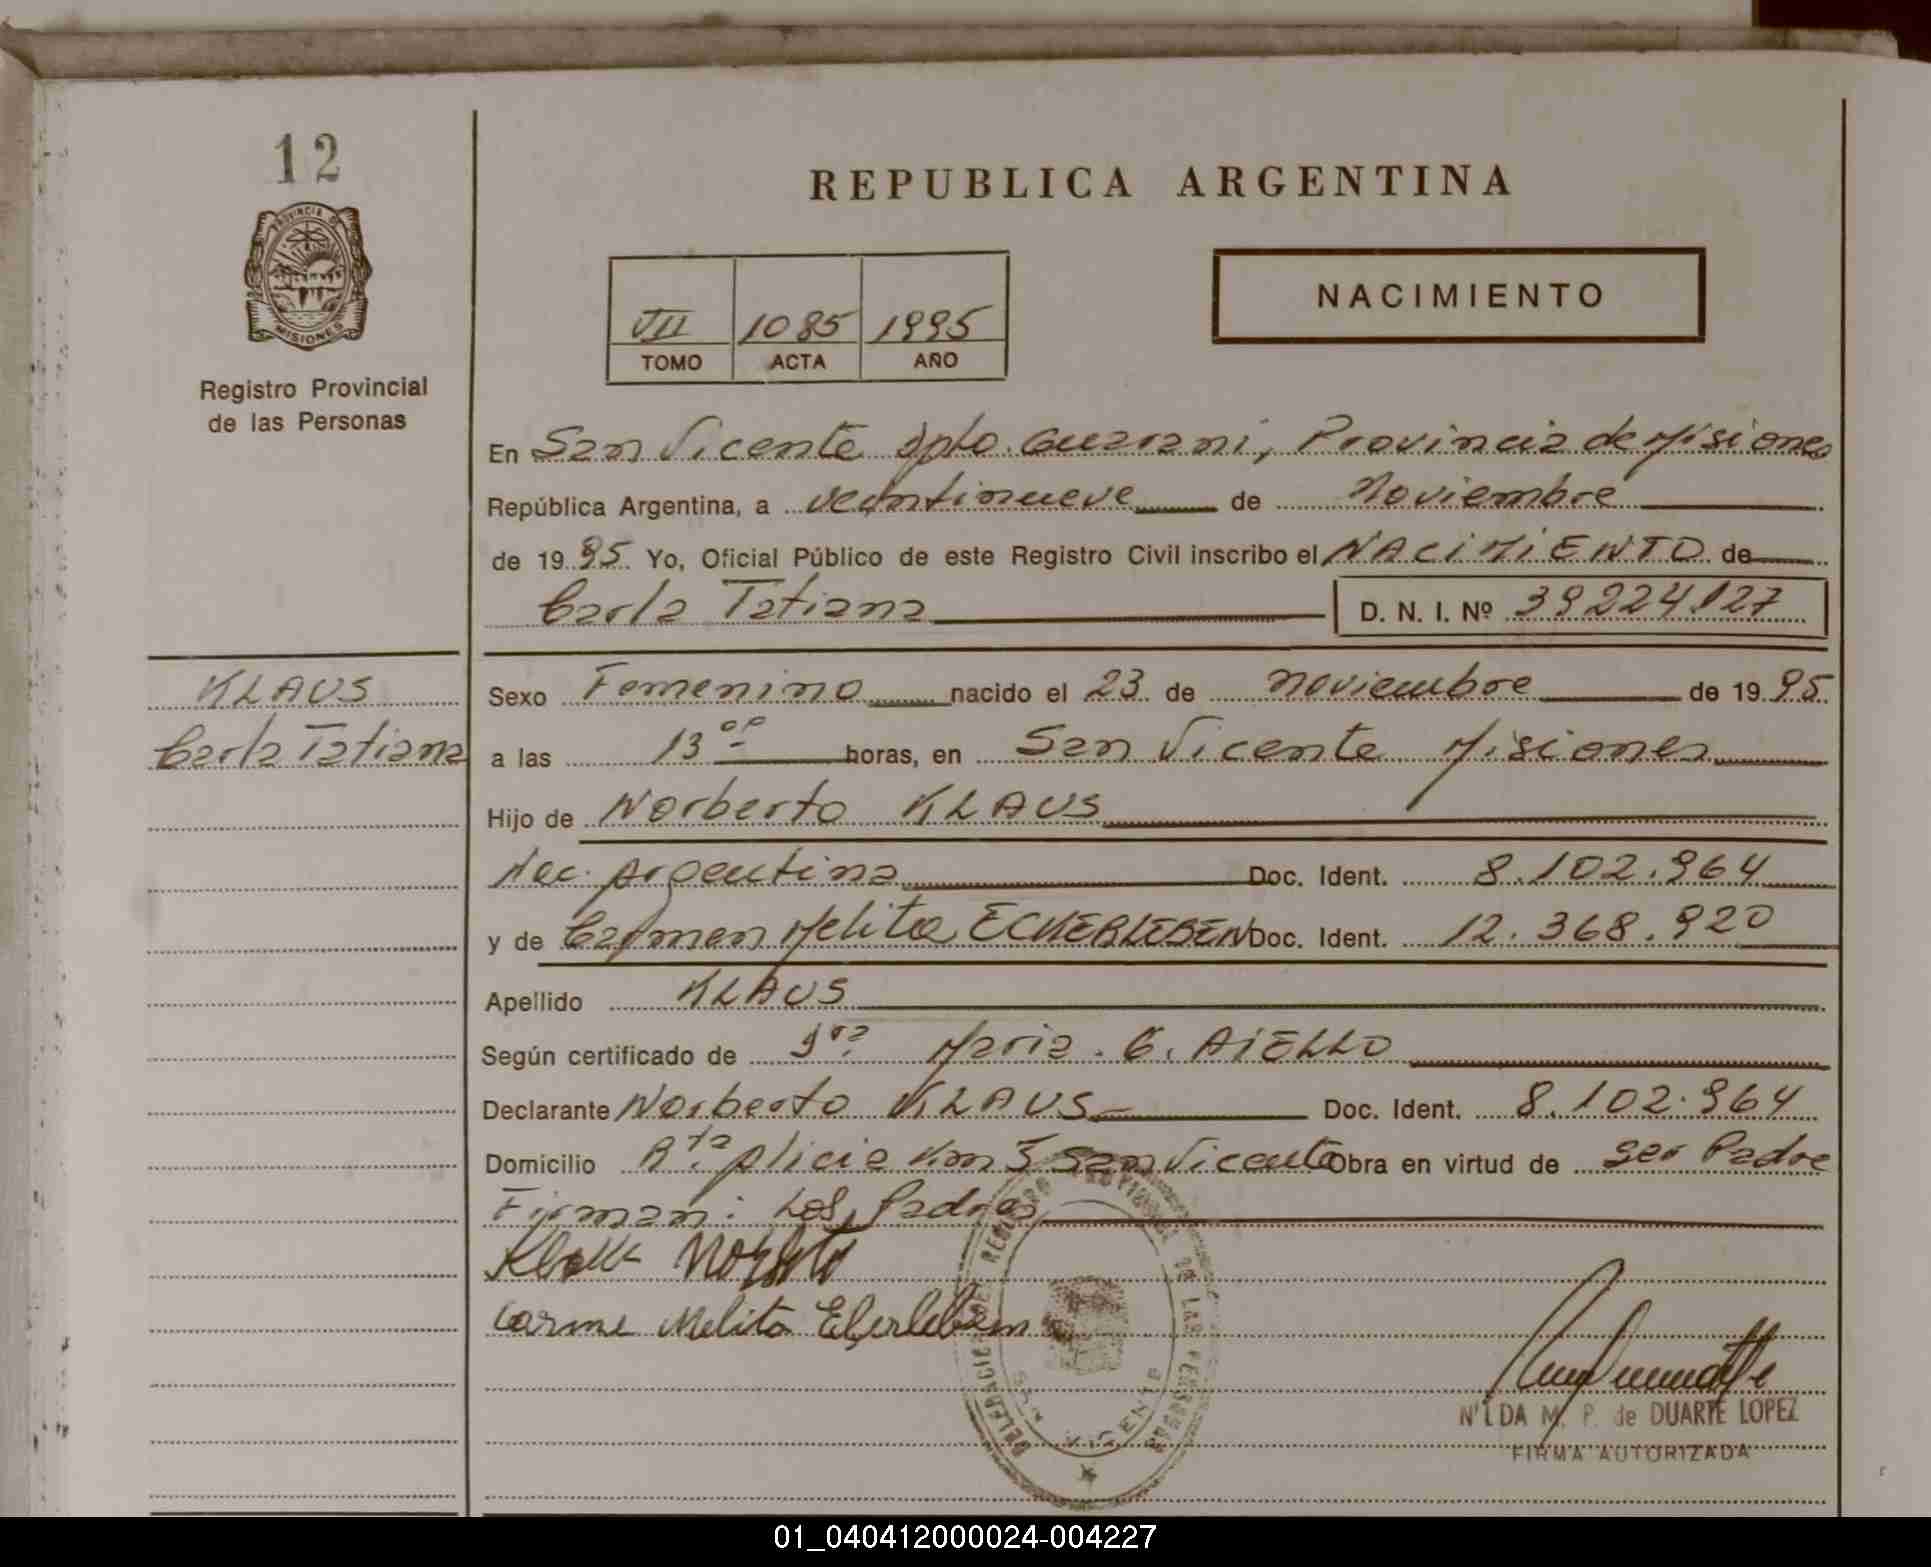 12
REPUBLICA ARGENTINA
PROVINCIA DE
MISIONES
Registro Provincial
de las Personas
NACIMIENTO
VII 1085 1995
TOMO ACTA AÑO
En San Vicente Dpto. Guarani, Provincia de Misiones
República Argentina, a veintinueve de Noviembre
de 1995. Yo, Oficial Público de este Registro Civil inscribo el NACIMIENTO de
Carla Tatiana D. N. I. Nº 39224127
KLAUS
Carla Tatiana
Sexo Femenino nacido el 23 de Noviembre de 1995.
a las 13 horas, en San Vicente Misiones
Hijo de Norberto KLAUS
Nac. Argentina Doc. Ident. 8.102.964
y de Carmen Melita ECKERLEBEN Doc. Ident. 12.368.920
Apellido KLAUS
Según certificado de Maria. G. AIELLO
Declarante Norberto KLAUS Doc. Ident. 8.102.964
Domicilio San Vicente Obra en virtud de ser Padre
Firman: Los Padres
Norberto
Carme Melita
DELEGACION DEL REGISTRO PROVINCIAL DE LAS PERSONAS
SAN VICENTE
NILDA M. P. de DUARTE LOPEZ
FIRMA AUTORIZADA
01_040412000024-004227